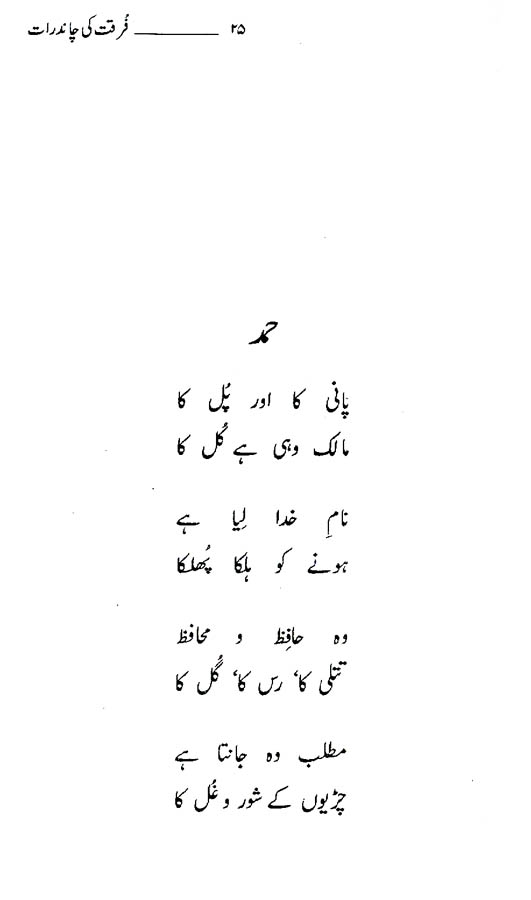 ۲۵ ________ فُرقت کی چاندرات
حمد
پانی کا اور پُل کا
مالک وہی ہے کُل کا
نامِ خدا لِیا ہے
ہونے کو ہلکا پُھلکا
وہ حافِظ و محافظ
تتلی کا‘ رس کا‘ گُل کا
مطلب وہ جانتا ہے
چڑیوں کے شور و غُل کا